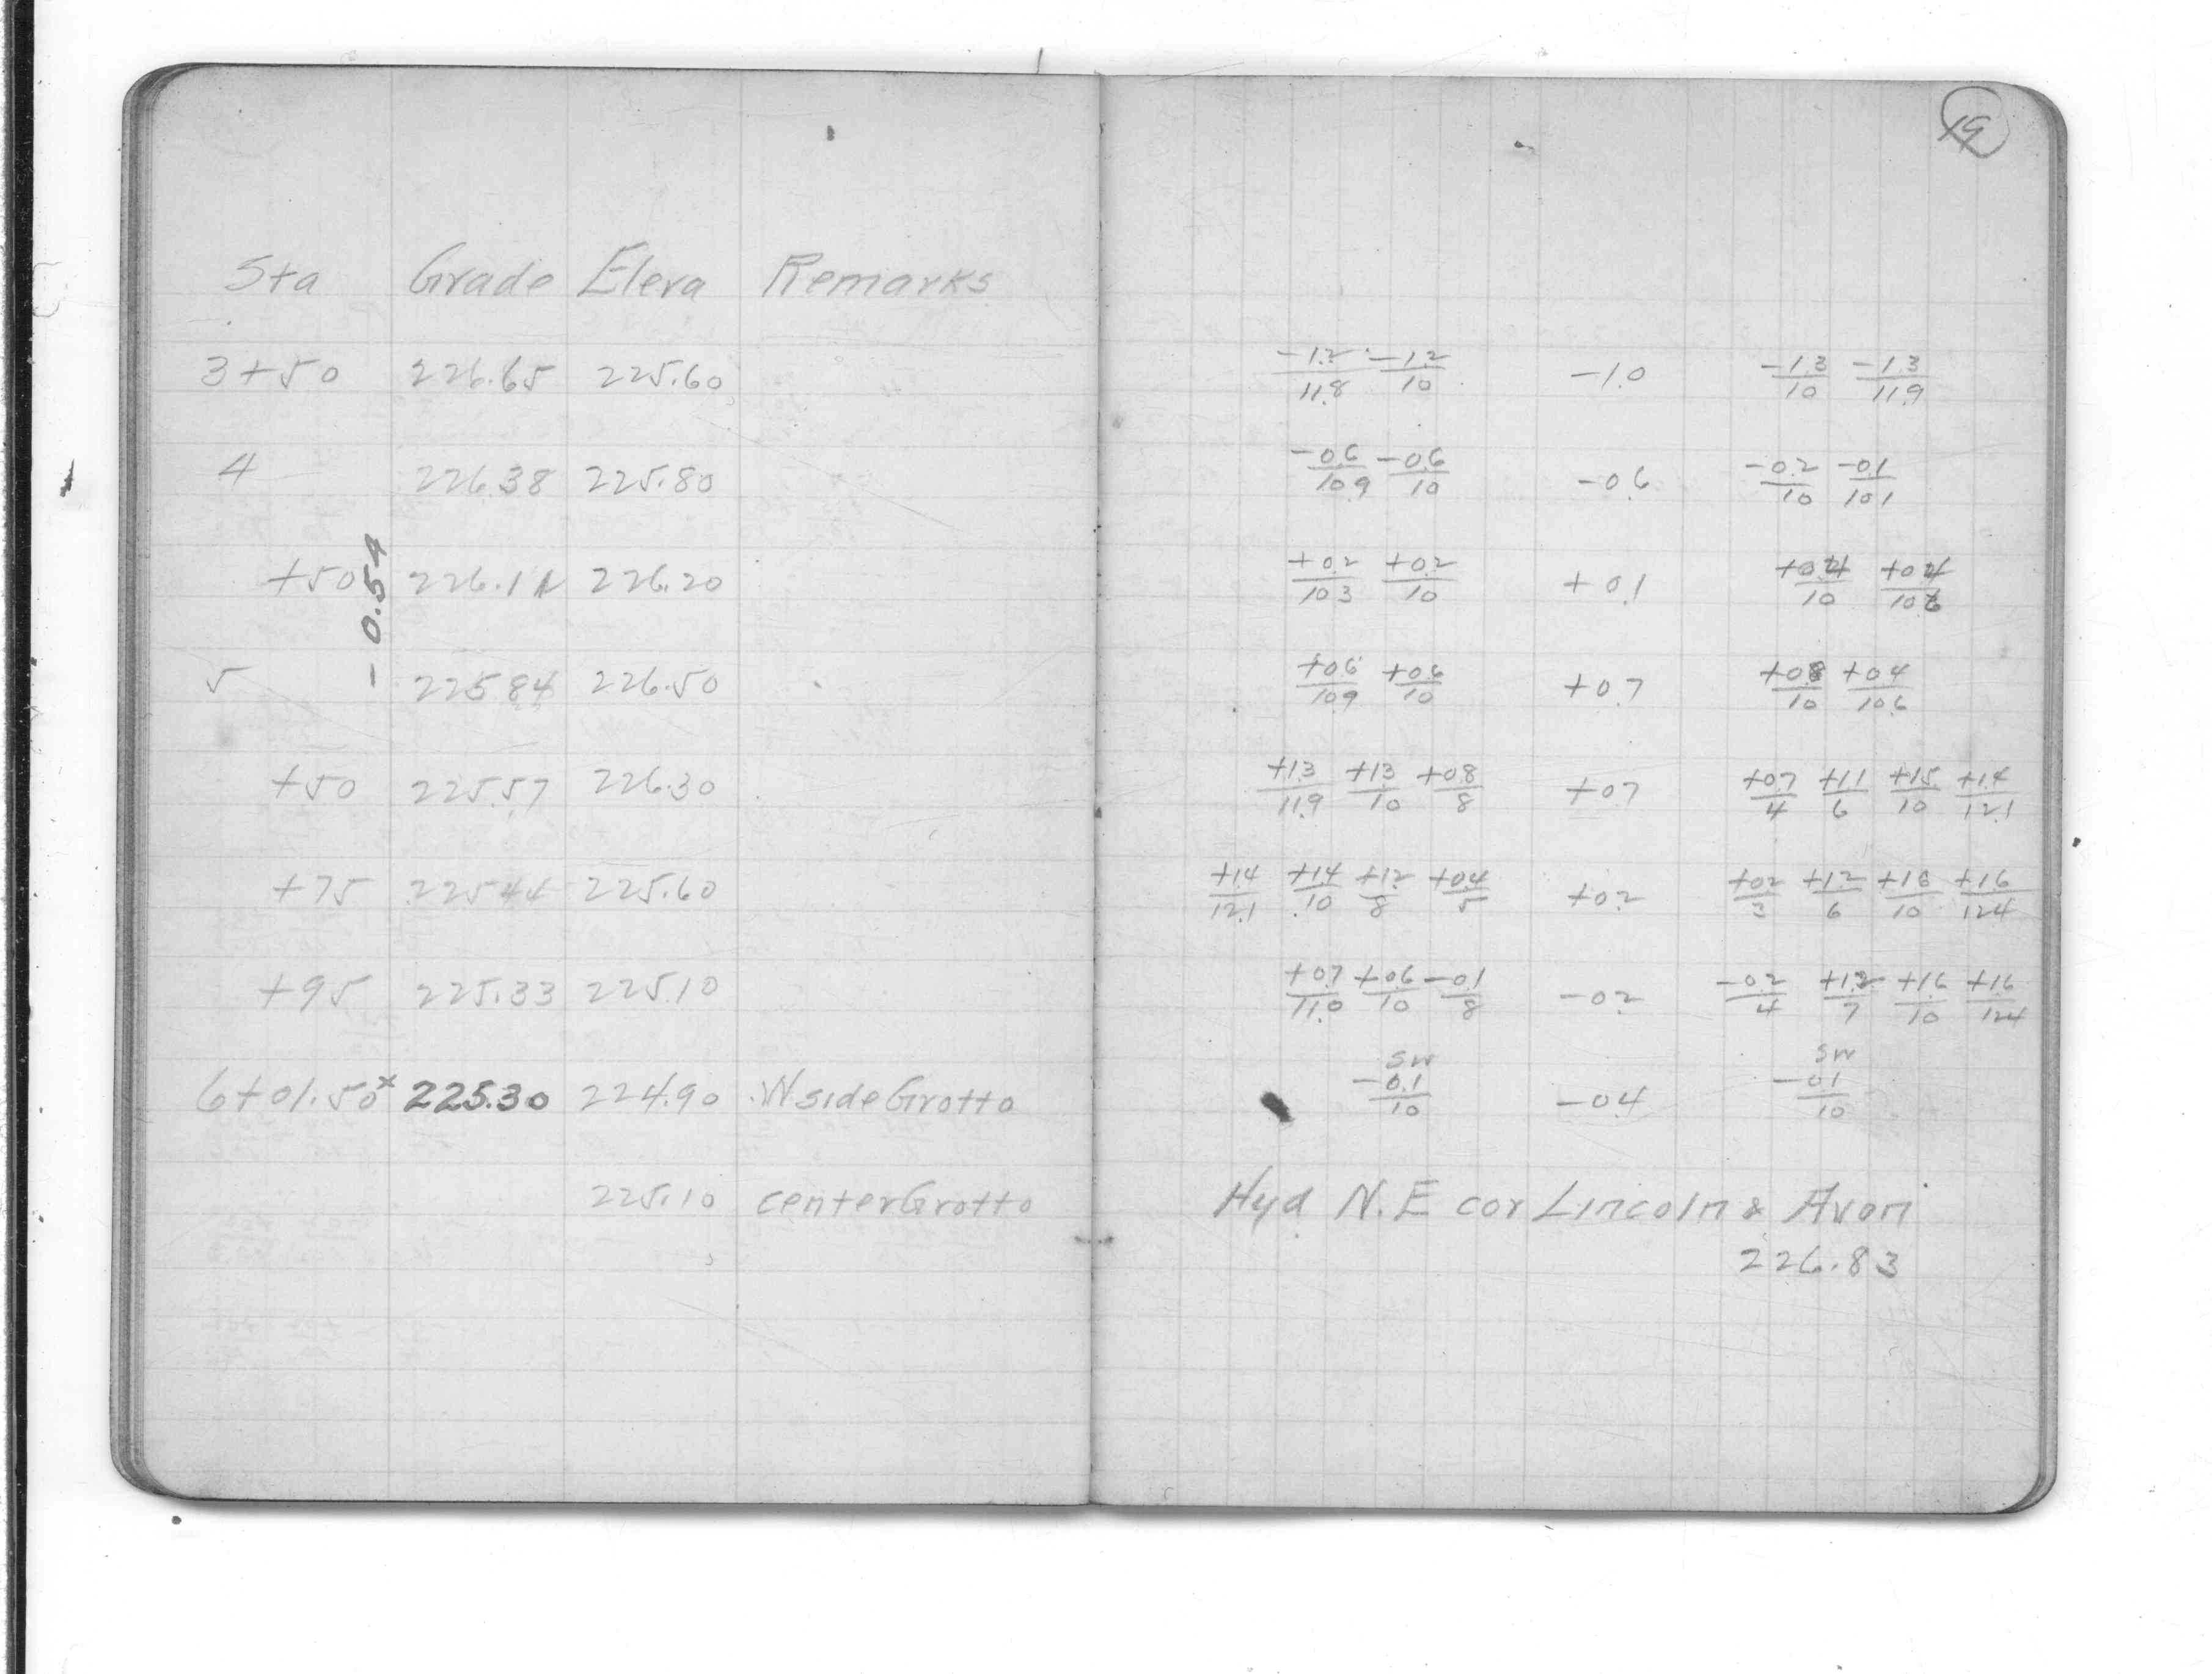 19
Sta Grade Eleva Remarks
3+50 226.65 225.60 -1.2/11.8 -1.2/10 -1.0 -1.3/10 -1.3/11.9
4 226.38 225.80 -0.6/10.9 -0.6/10 -0.6 -0.2/10 -0.1/10.1
-0.54
+50 226.11 226.20 +0.2/10.3 +0.2/10 +0.1 +0.4/10 +0.4/10.6
5 225.84 226.50 +0.6/10.9 +0.6/10 +0.7 +0.8/10 +0.4/10.6
+50 225.57 226.30 +1.3/11.9 +1.3/10 +0.8/8 +0.7 +0.7/4 +1.1/6 +1.5/10 +1.4/12.1
+75 225.44 225.60 +1.4/12.1 +1.4/10 +1.2/8 +0.4/5 +0.2 +0.2/3 +1.2/6 +1.8/10 +1.6/12.4
+95 225.33 225.10 +0.7/11.0 +0.6/10 -0.1/8 -0.2 -0.2/4 +1.2/7 +1.6/10 +1.6/12.4
SW SW
6+01.50x 225.30 224.90 W side Grotto -0.1/10 -0.4 -0.1/10
225.10 center Grotto Hyd N.E cor Lincoln & Avon
226.83